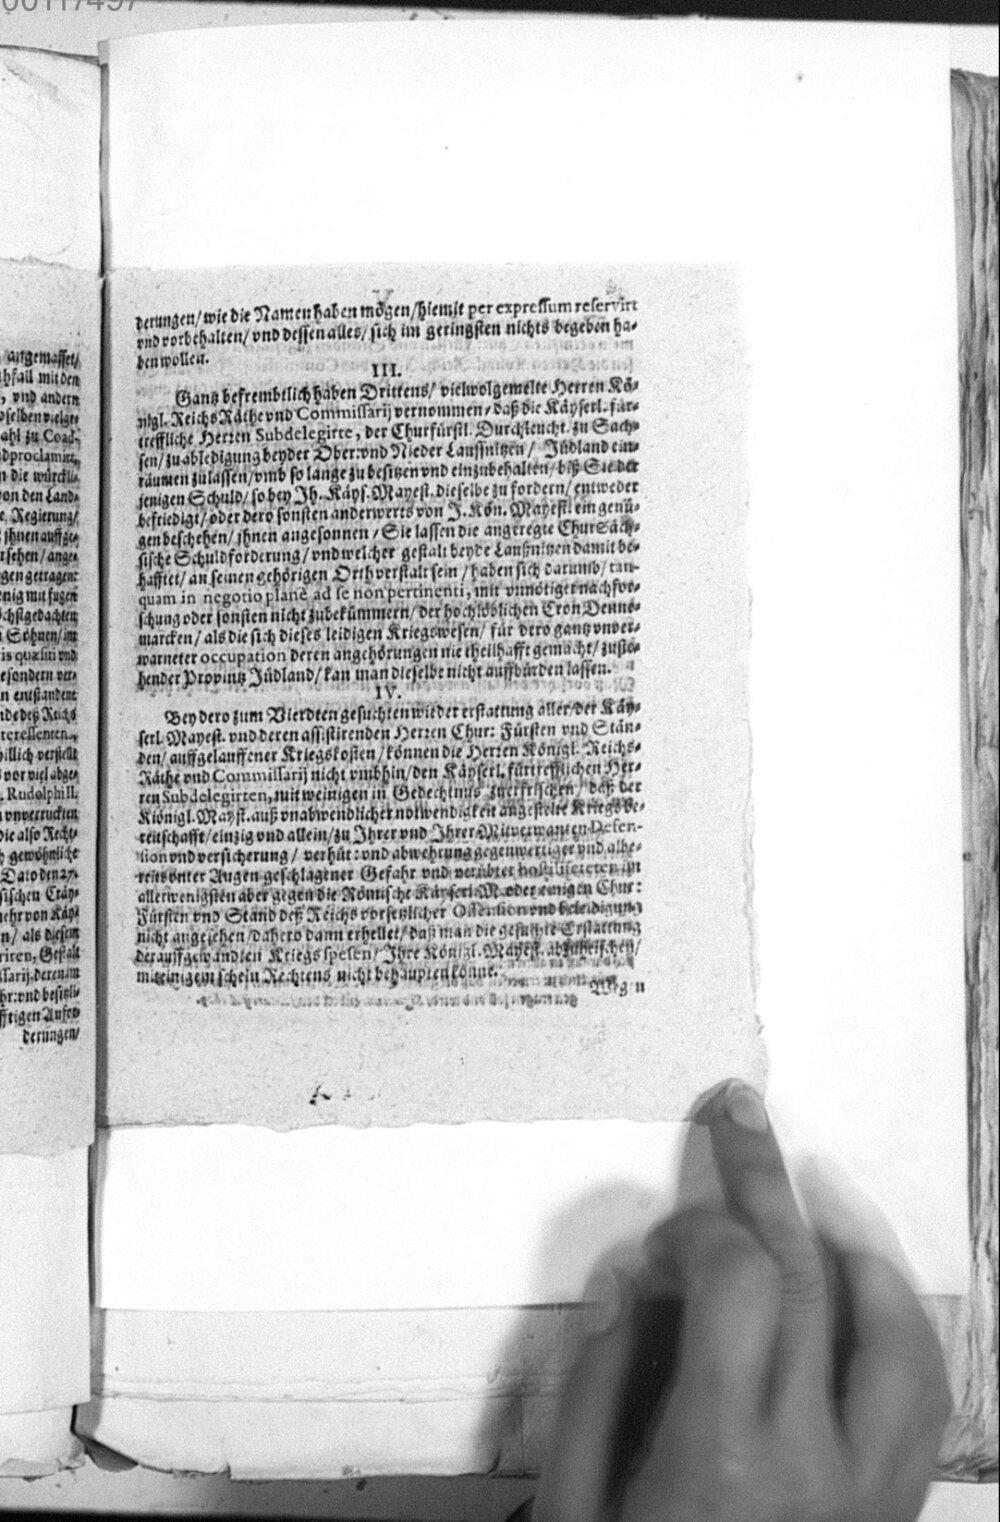 00117497
angemasset/
hfall mit den
, vnd andern
ahl zu Coad-
dproclamirt,
n die würckli-
von den Land-
e, Regierung/
jhnen auffge-
rsehen/ ange-
gen getragen:
nig mit fugen
chstgedachten
Söhnen/ im
is qualiti vnd
esondern ver-
n entstandene
nde deß Reichs
teressenten,
billich verstellt
vor viel abge-
. Rudolphi II.
n vnverruckten
die also Recht-
h gewöhnliche
Dato den 27.
sischen Cräy-
ehr von Käy-
n/ als diesem
riren, Gestalt
sarij, deren im
hr: vnd besitzli-
fftigen Anfor-
derungen/
derungen/ wie die Namen haben mögen/ hiemit per expressum reservirt
vnd vorbehalten/ vnd dessen alles/ sich im geringsten nichts begeben ha-
ben wollen.
III.
Gantz befrembtlich haben Drittens/ vielwolgemelte Herren Kö-
nigl. Reichs Räthe vnd Commissarij vernommen/ daß die Käyserl. für-
treffliche Herren Subdelegirte, der Churfürstl. Durchleucht. zu Sach-
sen/ zu abledigung beyder Ober: vnd Nieder Laussnitzen/ Jüdland ein-
räumen zulassen/ vmb so lange zu besitzen vnd einzubehalten/ biß Sie der
jenigen Schuld/ so bey Jh. Käys. Mayest. dieselbe zu fordern/ entweder
befriedigt/ oder dero sonsten anderwerts von J. Kön. Mayest. ein genü-
gen beschehen/ jhnen angesonnen/ Sie lassen die angeregte ChurSäch-
sische Schuldforderung/ vnd welcher gestalt beyde Laußnitzen damit be-
hafftet/ an seinen gehörigen Orth verstalt sein/ haben sich darumb/ tan-
quam in negotio planè ad se non pertinenti, mit vnnötiger nachfor-
schung oder sonsten nicht zubekümmern/ der hochlöblichen Cron Denne-
marcken/ als die sich dieses leidigen Kriegswesen/ für dero gantz vnver-
warneter occupation deren angehörungen nie theilhafft gemacht/ zuste-
hender Provintz Jüdland/ kan man dieselbe nicht auffbürden lassen.
IV.
Bey dero zum Vierdten gesuchten wieder erstattung aller/ der Käy-
serl. Mayest. vnd deren assistirenden Herren Chur: Fürsten vnd Stän-
den/ auffgelauffener Kriegskosten/ können die Herren Königl. Reichs-
Räthe vnd Commissarij nicht vmbhin/ den Käyserl. fürtrefflichen Her-
ren Subdelegirten, mit weinigen in Gedechtnus zuerfrischen/ daß der
Kiönigl. Mayst. auß vnabwendlicher notwendigkeit angestelte Kriegsbe-
reitschafft/ einzig vnd allein/ zu Jhrer vnd Jhrer Mitverwanten Defen-
sion vnd versicherung/ verhüt: vnd abwehrung gegenwertiger vnd albe-
reits vnter Augen geschlagener Gefahr vnd verübter hostiliteten im
allerwenigsten aber gegen die Römische Käyserl. M. oder einigen Chur:
Fürsten vnd Stand deß Reichs vorsetzlicher Offension vnd beleidigung
nicht angesehen/ dahero dann erhellet/ daß man die gesuchte Erstattung
derauff gewandten Kriegsspesen/ Jhre Königl. Mayest. abzuheischen/
mit einigem schein Rechtens nicht behaupten könne.
Weg n